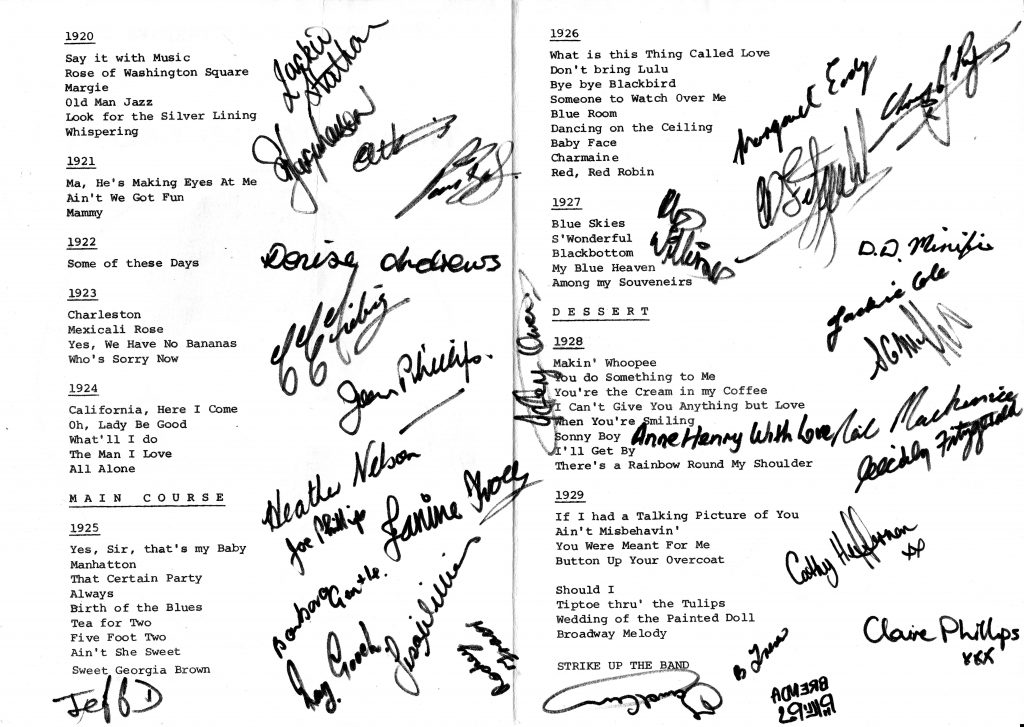 1920
Say it with Music
Rose of Washington Square
Margie
Old Man Jazz
Look for the Silver Lining
Whispering
1921
Ma, He's Making Eyes At Me
Ain't We Got Fun
Mammy
1922
Some of these Days
1923
Charleston
Mexicali Rose
Yes, We Have No Bananas
Who's Sorry Now
1924
California, Here I Come
Oh, Lady Be Good
What'll I do
The Man I Love
All Alone
MAIN COURSE
1925
Yes, Sir, that's my Baby
Manhatton
That Certain Party
Always
Birth of the Blues
Tea for Two
Five Foot Two
Ain't She Sweet
Sweet Georgia Brown
Jeff D
Jackie
Denise Andrews
Jean Phillips.
Heather Nelson
Joe Phillips
Janine
Barbara Gentle.
1926
What is this Thing Called Love
Don't bring Lulu
Bye bye Blackbird
Someone to Watch Over Me
Blue Room
Dancing on the Ceiling
Baby Face
Charmaine
Red, Red Robin
1927
Blue Skies
S'Wonderful
Blackbottom
My Blue Heaven
Among my Souveneirs
DESSERT
1928
Makin' Whoopee
You do Something to Me
You're the Cream in my Coffee
I Can't Give You Anything but Love
When You're Smiling
Sonny Boy
I'll Get By
There's a Rainbow Round My Shoulder
1929
If I had a Talking Picture of You
Ain't Misbehavin'
You Were Meant For Me
Button Up Your Overcoat
Should I
Tiptoe thru' the Tulips
Wedding of the Painted Doll
Broadway Melody
STRIKE UP THE BAND
Margaret Eady
D.D. Minifie
Jackie Cole
Anne Henry With Love
Neil Mackenzie
Fitzgerald
Cathy Heffernan xx
Claire Phillips
xxx
BRENDA